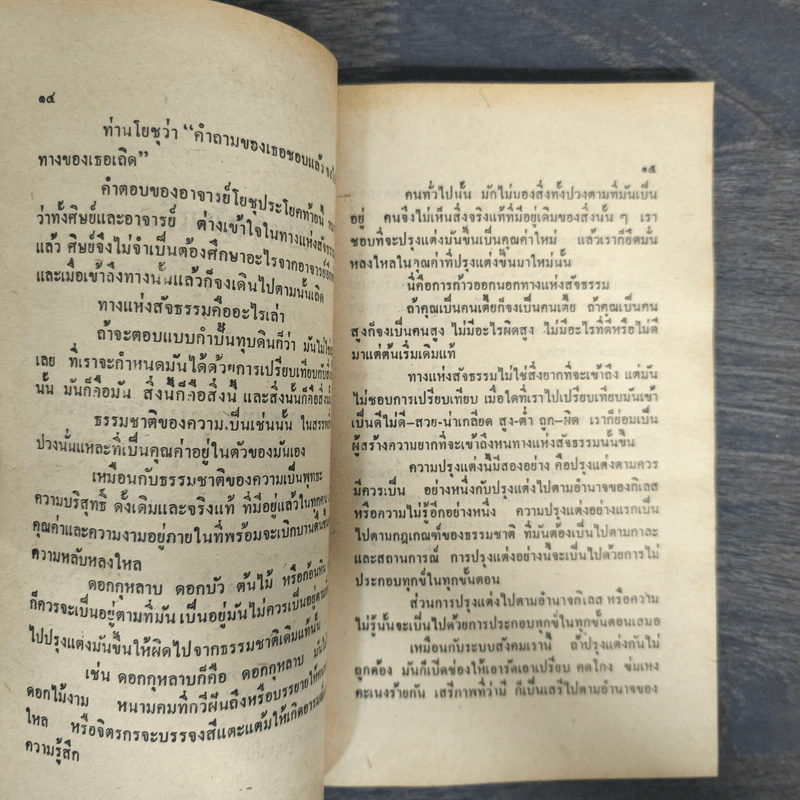 ๑๔
ท่านโยชุว่า “คำถามของเธอชอบแล้ว
ทางของเธอเถิด”
คำตอบของอาจารย์โยชุประโยคท้ายนี้
ว่าทั้งศิษย์และอาจารย์ ต่างเข้าใจในทางแห่งสัจธรรม
แล้ว ศิษย์จึงไม่จำเป็นต้องศึกษาอะไรจากอาจารย์อีก
และเมื่อเข้าถึงทางนั้นแล้วก็จงเดินไปตามนั้นเถิด
ทางแห่งสัจธรรมคืออะไรเล่า
ถ้าจะตอบแบบกำปั้นทุบดินก็ว่า มันไม่
เลย ที่เราจะกำหนดมันได้ด้วยการเปรียบเทียบกับ
นั้น มันก็คือมัน สิ่งนี้ก็คือสิ่งนี้ และสิ่งนั้นก็คือสิ่ง
ธรรมชาติของความเป็นเช่นนั้น ในสรรพสิ่ง
ปวงนั่นแหละที่เป็นคุณค่าอยู่ในตัวของมันเอง
เหมือนกับธรรมชาติของความเป็นพุทธะ
ความบริสุทธิ์ ดั้งเดิมและจริงแท้ ที่มีอยู่แล้วในทุกคน
คุณค่าและความงามอยู่ภายในที่พร้อมจะเบิกบาน
ความหลับหลงใหล
ดอกกุหลาบ ดอกบัว ต้นไม้ หรือก้อนหิน
ก็ควรจะเป็นอยู่ตามที่มัน เป็นอยู่มันไม่ควรเป็นอยู่
ไปปรุงแต่งมันขึ้นให้ผิดไปจากธรรมชาติเดิมแท้นั้น
เช่น ดอกกุหลาบก็คือ ดอกกุหลาบ
ดอกไม้งาม หนามคมที่กวีฝันถึงหรือบรรยายให้
ไหล หรือจิตรกรจะบรรจงสีแตะแต้มให้เกิด
ความรู้สึก
๑๕
คนทั่วไปนั้น มักไม่มองสิ่งทั้งปวงตามที่มันเป็น
อยู่ คนจึงไม่เห็นสิ่งจริงแท้ที่มีอยู่เดิมของสิ่งนั้น ๆ เรา
ชอบที่จะปรุงแต่งมันขึ้นเป็นคุณค่าใหม่ แล้วเราก็ยึดมั่น
หลงใหลในคุณค่าที่ปรุงแต่งขึ้นมาใหม่นั้น
นี่คือการก้าวออกนอกทางแห่งสัจธรรม
ถ้าคุณเป็นคนเตี้ยก็จงเป็นคนเตี้ย ถ้าคุณเป็นคน
สูงก็จงเป็นคนสูง ไม่มีอะไรผิดสูง ไม่มีอะไรที่ดีหรือไม่ดี
มาแต่ต้นเริ่มเดิมแท้
ทางแห่งสัจธรรมไม่ใช่สิ่งยากที่จะเข้าถึง แต่มัน
ไม่ชอบการเปรียบเทียบ เมื่อใดที่เราไปเปรียบเทียบมันเข้า
เป็นดีไม่ดี–สวย-น่าเกลียด สูง-ต่ำ ถูก–ผิด เราก็ย่อมเป็น
ผู้สร้างความยากที่จะเข้าถึงหนทางแห่งสัจธรรมนั้นขึ้น
ความปรุงแต่งนี้มีสองอย่าง คือปรุงแต่งตามควร
มีควรเป็น อย่างหนึ่งกับปรุงแต่งไปตามอำนาจของกิเลส
หรือความไม่รู้อีกอย่างหนึ่ง ความปรุงแต่งอย่างแรกเป็น
ไปตามกฎเกณฑ์ของธรรมชาติ ที่มันต้องเป็นไปตามกาละ
และสถานการณ์ การปรุงแต่งอย่างนี้จะเป็นไปด้วยการไม่
ประกอบทุกข์ในทุกขั้นตอน
ส่วนการปรุงแต่งไปตามอำนาจกิเลส หรือความ
ไม่รู้นั้นจะเป็นไปด้วยการประกอบทุกข์ในทุกขั้นตอนเสมอ
เหมือนกับระบบสังคมเรานี้ ถ้าปรุงแต่งกันไม่
ถูกต้อง มันก็เปิดช่องให้เอารัดเอาเปรียบ คดโกง ข่มเหง
คะเนงร้ายกัน เสรีภาพที่ว่ามี ก็เป็นเสรีไปตามอำนาจของ